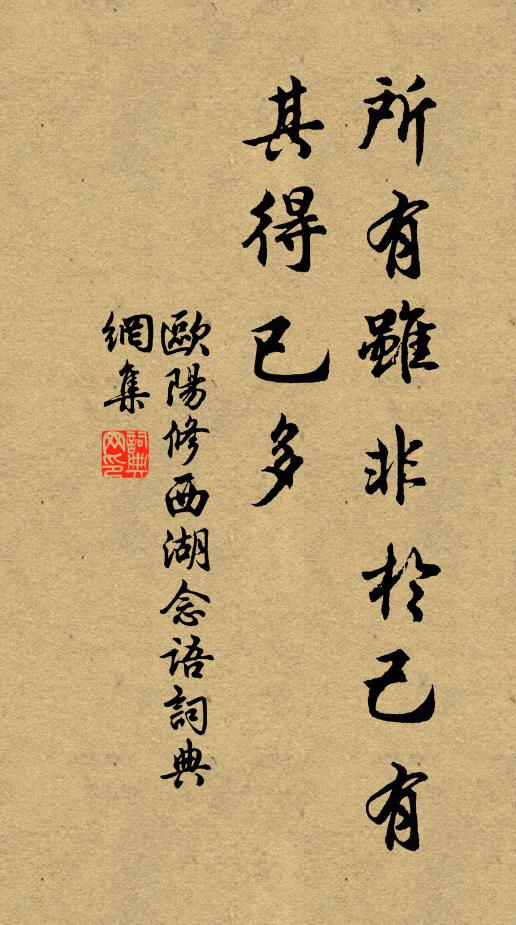 所有雖非於己有
其得已多
歐陽修西湖念語詞典
網集
詞典
网印